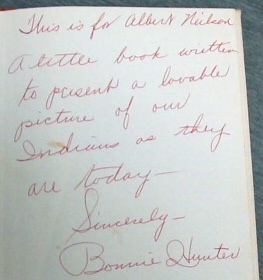 This is for Albert Nielson
A little book written
to present a lovable
picture of our
Indians as they
are today—
Sincerely—
Bonnie Hunter